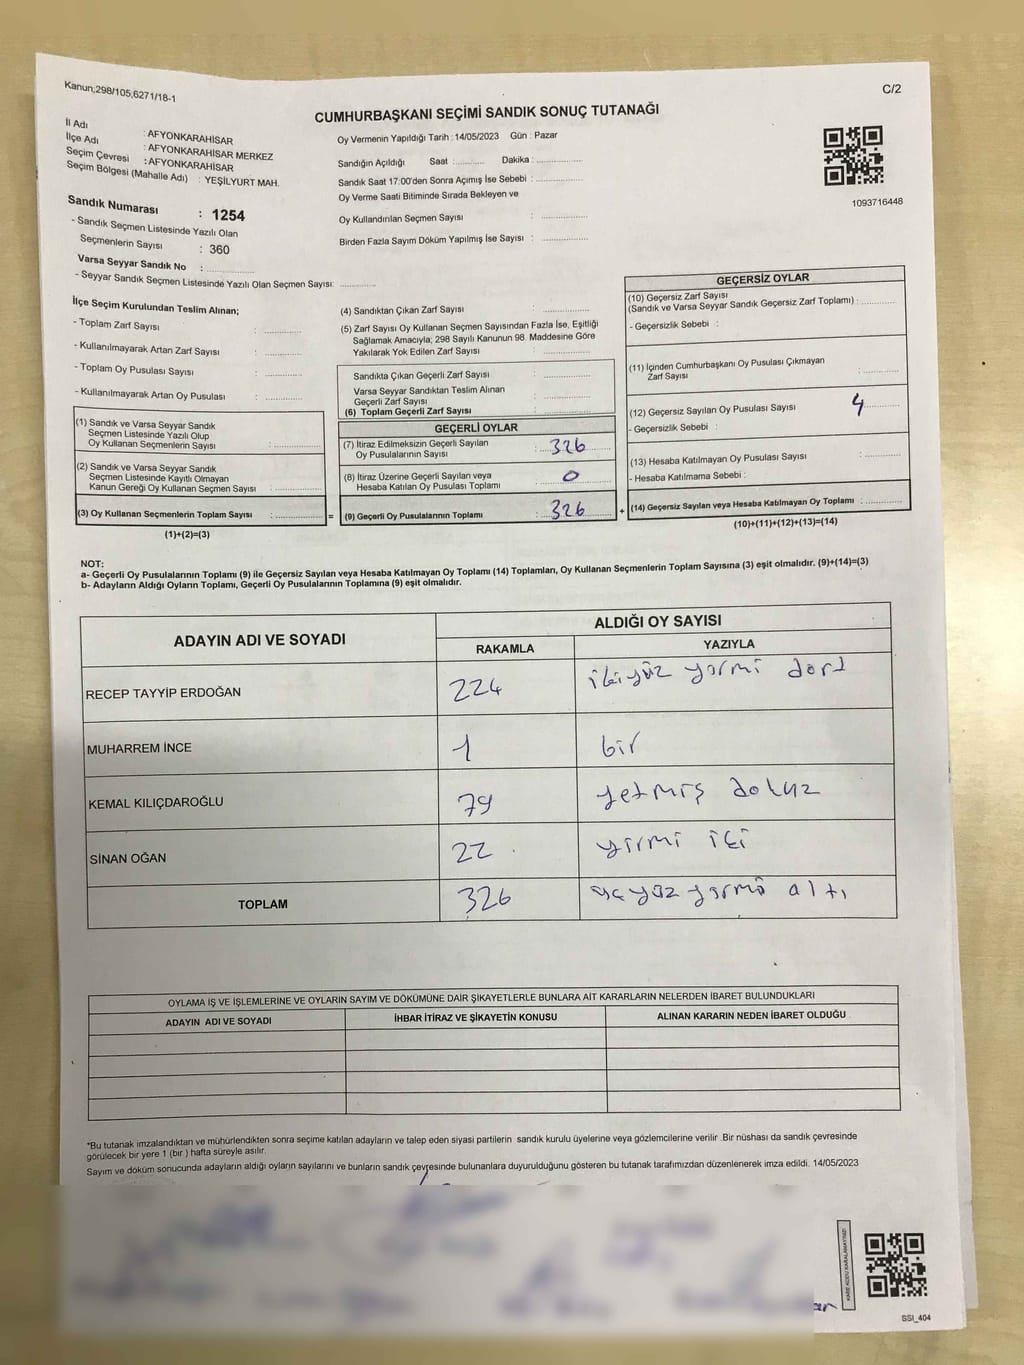 Kanun,298/105,6271/18-1
C/2
CUMHURBAŞKANI SEÇİMİ SANDIK SONUÇ TUTANAĞI
İl Adı : AFYONKARAHİSAR
İlçe Adı : AFYONKARAHİSAR MERKEZ
Seçim Çevresi : AFYONKARAHİSAR
Seçim Bölgesi (Mahalle Adı) : YEŞİLYURT MAH.
Sandık Numarası : 1254
- Sandık Seçmen Listesinde Yazılı Olan
Seçmenlerin Sayısı : 360
Varsa Seyyar Sandık No :
- Seyyar Sandık Seçmen Listesinde Yazılı Olan Seçmen Sayısı:
Oy Vermenin Yapıldığı Tarih : 14/05/2023 Gün : Pazar
Sandığın Açıldığı Saat : Dakika :
Sandık Saat 17:00'den Sonra Açımış İse Sebebi :
Oy Verme Saati Bitiminde Sırada Bekleyen ve
Oy Kullandırılan Seçmen Sayısı :
Birden Fazla Sayım Döküm Yapılmış İse Sayısı :
1093716448
İlçe Seçim Kurulundan Teslim Alınan;
- Toplam Zarf Sayısı :
- Kullanılmayarak Artan Zarf Sayısı :
- Toplam Oy Pusulası Sayısı :
- Kullanılmayarak Artan Oy Pusulası :
(1) Sandık ve Varsa Seyyar Sandık
Seçmen Listesinde Yazılı Olup
Oy Kullanan Seçmenlerin Sayısı :
(2) Sandık ve Varsa Seyyar Sandık
Seçmen Listesinde Kayıtlı Olmayan
Kanun Gereği Oy Kullanan Seçmen Sayısı :
(3) Oy Kullanan Seçmenlerin Toplam Sayısı : =
(1)+(2)=(3)
(4) Sandıktan Çıkan Zarf Sayısı :
(5) Zarf Sayısı Oy Kullanan Seçmen Sayısından Fazla İse, Eşitliği
Sağlamak Amacıyla; 298 Sayılı Kanunun 98. Maddesine Göre
Yakılarak Yok Edilen Zarf Sayısı :
Sandıkta Çıkan Geçerli Zarf Sayısı :
Varsa Seyyar Sandıktan Teslim Alınan
Geçerli Zarf Sayısı :
(6) Toplam Geçerli Zarf Sayısı :
GEÇERLİ OYLAR
(7) İtiraz Edilmeksizin Geçerli Sayılan
Oy Pusulalarının Sayısı : 326
(8) İtiraz Üzerine Geçerli Sayılan veya
Hesaba Katılan Oy Pusulası Toplamı : 0
(9) Geçerli Oy Pusulalarının Toplamı : 326 +
GEÇERSİZ OYLAR
(10) Geçersiz Zarf Sayısı
(Sandık ve Varsa Seyyar Sandık Geçersiz Zarf Toplamı) :
- Geçersizlik Sebebi :
(11) İçinden Cumhurbaşkanı Oy Pusulası Çıkmayan
Zarf Sayısı :
(12) Geçersiz Sayılan Oy Pusulası Sayısı : 4
- Geçersizlik Sebebi :
(13) Hesaba Katılmayan Oy Pusulası Sayısı :
- Hesaba Katılmama Sebebi :
(14) Geçersiz Sayılan veya Hesaba Katılmayan Oy Toplamı :
(10)+(11)+(12)+(13)=(14)
NOT:
a- Geçerli Oy Pusulalarının Toplamı (9) ile Geçersiz Sayılan veya Hesaba Katılmayan Oy Toplamı (14) Toplamları, Oy Kullanan Seçmenlerin Toplam Sayısına (3) eşit olmalıdır. (9)+(14)=(3)
b- Adayların Aldığı Oyların Toplamı, Geçerli Oy Pusulalarının Toplamına (9) eşit olmalıdır.
ADAYIN ADI VE SOYADI
ALDIĞI OY SAYISI
RAKAMLA YAZIYLA
RECEP TAYYİP ERDOĞAN 224 ikiyüz yirmi dört
MUHARREM İNCE 1 bir
KEMAL KILIÇDAROĞLU 79 yetmiş dokuz
SİNAN OĞAN 22 yirmi iki
TOPLAM 326 üçyüz yirmi altı
OYLAMA İŞ VE İŞLEMLERİNE VE OYLARIN SAYIM VE DÖKÜMÜNE DAİR ŞİKAYETLERLE BUNLARA AİT KARARLARIN NELERDEN İBARET BULUNDUKLARI
ADAYIN ADI VE SOYADI İHBAR İTİRAZ VE ŞİKAYETİN KONUSU ALINAN KARARIN NEDEN İBARET OLDUĞU
*Bu tutanak imzalandıktan ve mühürlendikten sonra seçime katılan adayların ve talep eden siyasi partilerin sandık kurulu üyelerine veya gözlemcilerine verilir .Bir nüshası da sandık çevresinde
görülecek bir yere 1 (bir ) hafta süreyle asılır.
Sayım ve döküm sonucunda adayların aldığı oyların sayılarını ve bunların sandık çevresinde bulunanlara duyurulduğunu gösteren bu tutanak tarafımızdan düzenlenerek imza edildi. 14/05/2023
KARE KODU KARALAMAYINIZ!
SSI_404